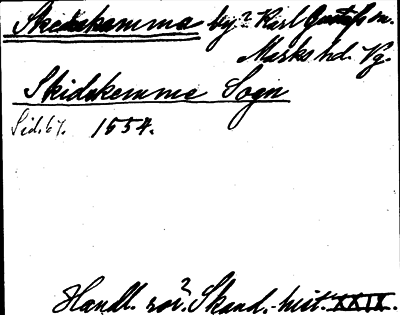 Skedekamma by? Karl Gustafs sn.
Marks hd. Vg.
Skidakemme Sogn
Sid. 67. 1554.
Handl. rör? Skand. hist. XXIX.